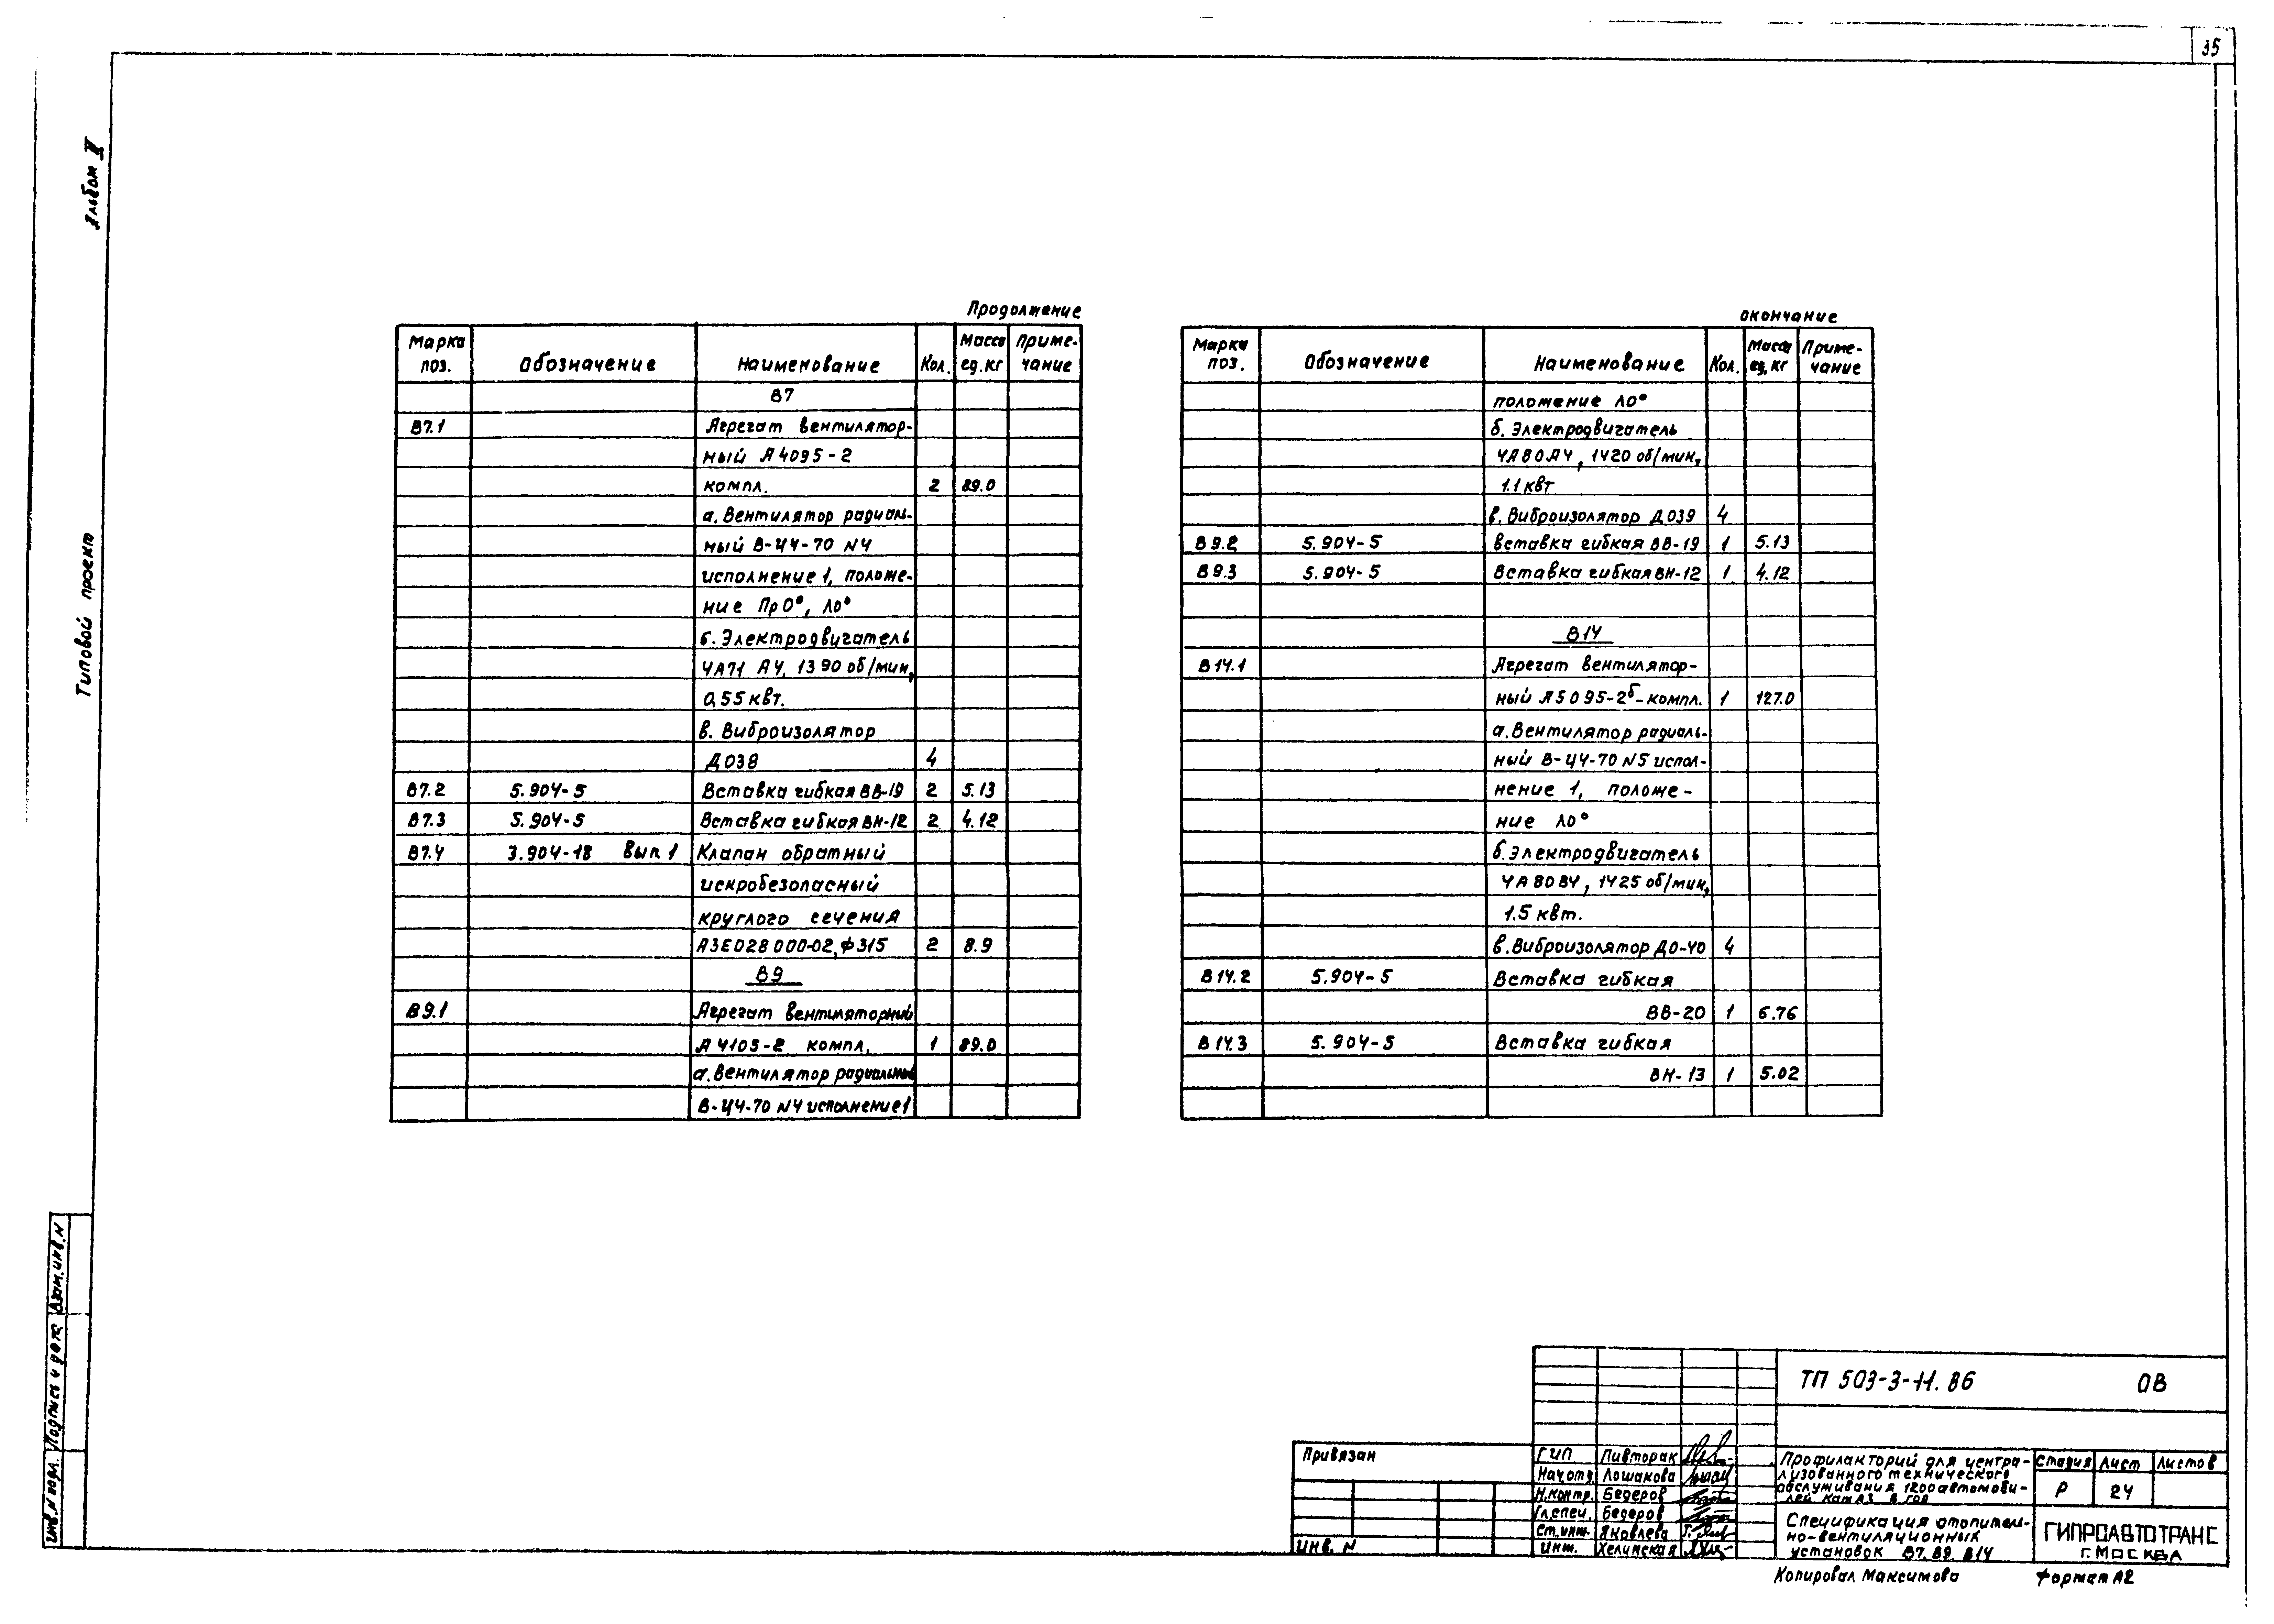 35
Альбом II
Типовой проект
Продолжение
Марка поз. Обозначение Наименование Кол. Масса ед. кг Приме-чание
В7
В7.1 Агрегат вентилятор-
ный А4095-2
компл. 2 89.0
а. Вентилятор радиаль-
ный В-Ц4-70 N4
исполнение 1, положе-
ние Пр0°, Л0°
б. Электродвигатель
4А71 А4, 1390 об/мин,
0,55 квт.
в. Виброизолятор
Д038 4
В7.2 5.904-5 Вставка гибкая ВВ-19 2 5.13
В7.3 5.904-5 Вставка гибкая ВН-12 2 4.12
В7.4 3.904-18 Вып. 1 Клапан обратный
искробезопасный
круглого сечения
АЗЕ028 000-02, Ф315 2 8.9
В9
В9.1 Агрегат вентиляторный
А4105-2 компл. 1 89.0
а. Вентилятор радиальный
В-Ц4-70 N4 исполнение 1
окончание
Марка поз. Обозначение Наименование Кол. Масса ед. кг Приме-чание
положение Л0°
б. Электродвигатель
4А80А4, 1420 об/мин,
1.1 квт
в. Виброизолятор Д039 4
В9.2 5.904-5 вставка гибкая ВВ-19 1 5.13
В9.3 5.904-5 Вставка гибкая ВН-12 1 4.12
В14
В14.1 Агрегат вентилятор-
ный А5095-2б-компл. 1 127.0
а. Вентилятор радиаль-
ный В-Ц4-70 N5 испол-
нение 1, положе-
ние Л0°
б. Электродвигатель
4А80В4, 1425 об/мин,
1.5 квт.
в. Виброизолятор Д0-40 4
В14.2 5.904-5 Вставка гибкая
ВВ-20 1 6.76
В14.3 5.904-5 Вставка гибкая
ВН-13 1 5.02
Взам.инв.N
Подпись и дата
Инв.N подл.
ТП 503-3-11.86 ОВ
Привязан
Инв. N
ГИП Пивторак
Нач.отд. Лошакова
Н.контр. Бедеров
Гл.спец. Бедеров
Ст.инж. Яковлева
Инж. Хелинская
Профилакторий для центра-
лизованного технического
обслуживания 1200 автомоби-
лей КамАЗ в год
Стадия Лист Листов
Р 24
Спецификация отопитель-
но-вентиляционных
установок В7, В9, В14
ГИПРОАВТОТРАНС
г. МОСКВА
Копировал Максимова Формат А2